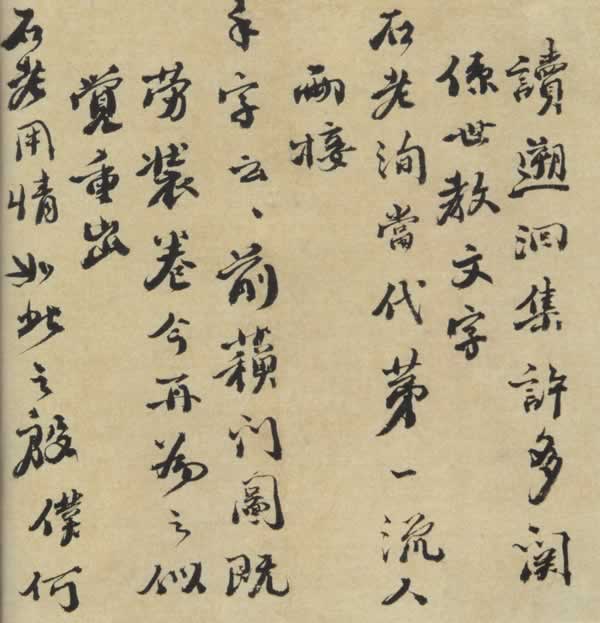 讀遡洄集許多関
係世教文字
石老洵當代第一流人
兩接
手字云〻前门圖既
劳裝卷今再為之似
覺重出
石老用情如此之殷僕何